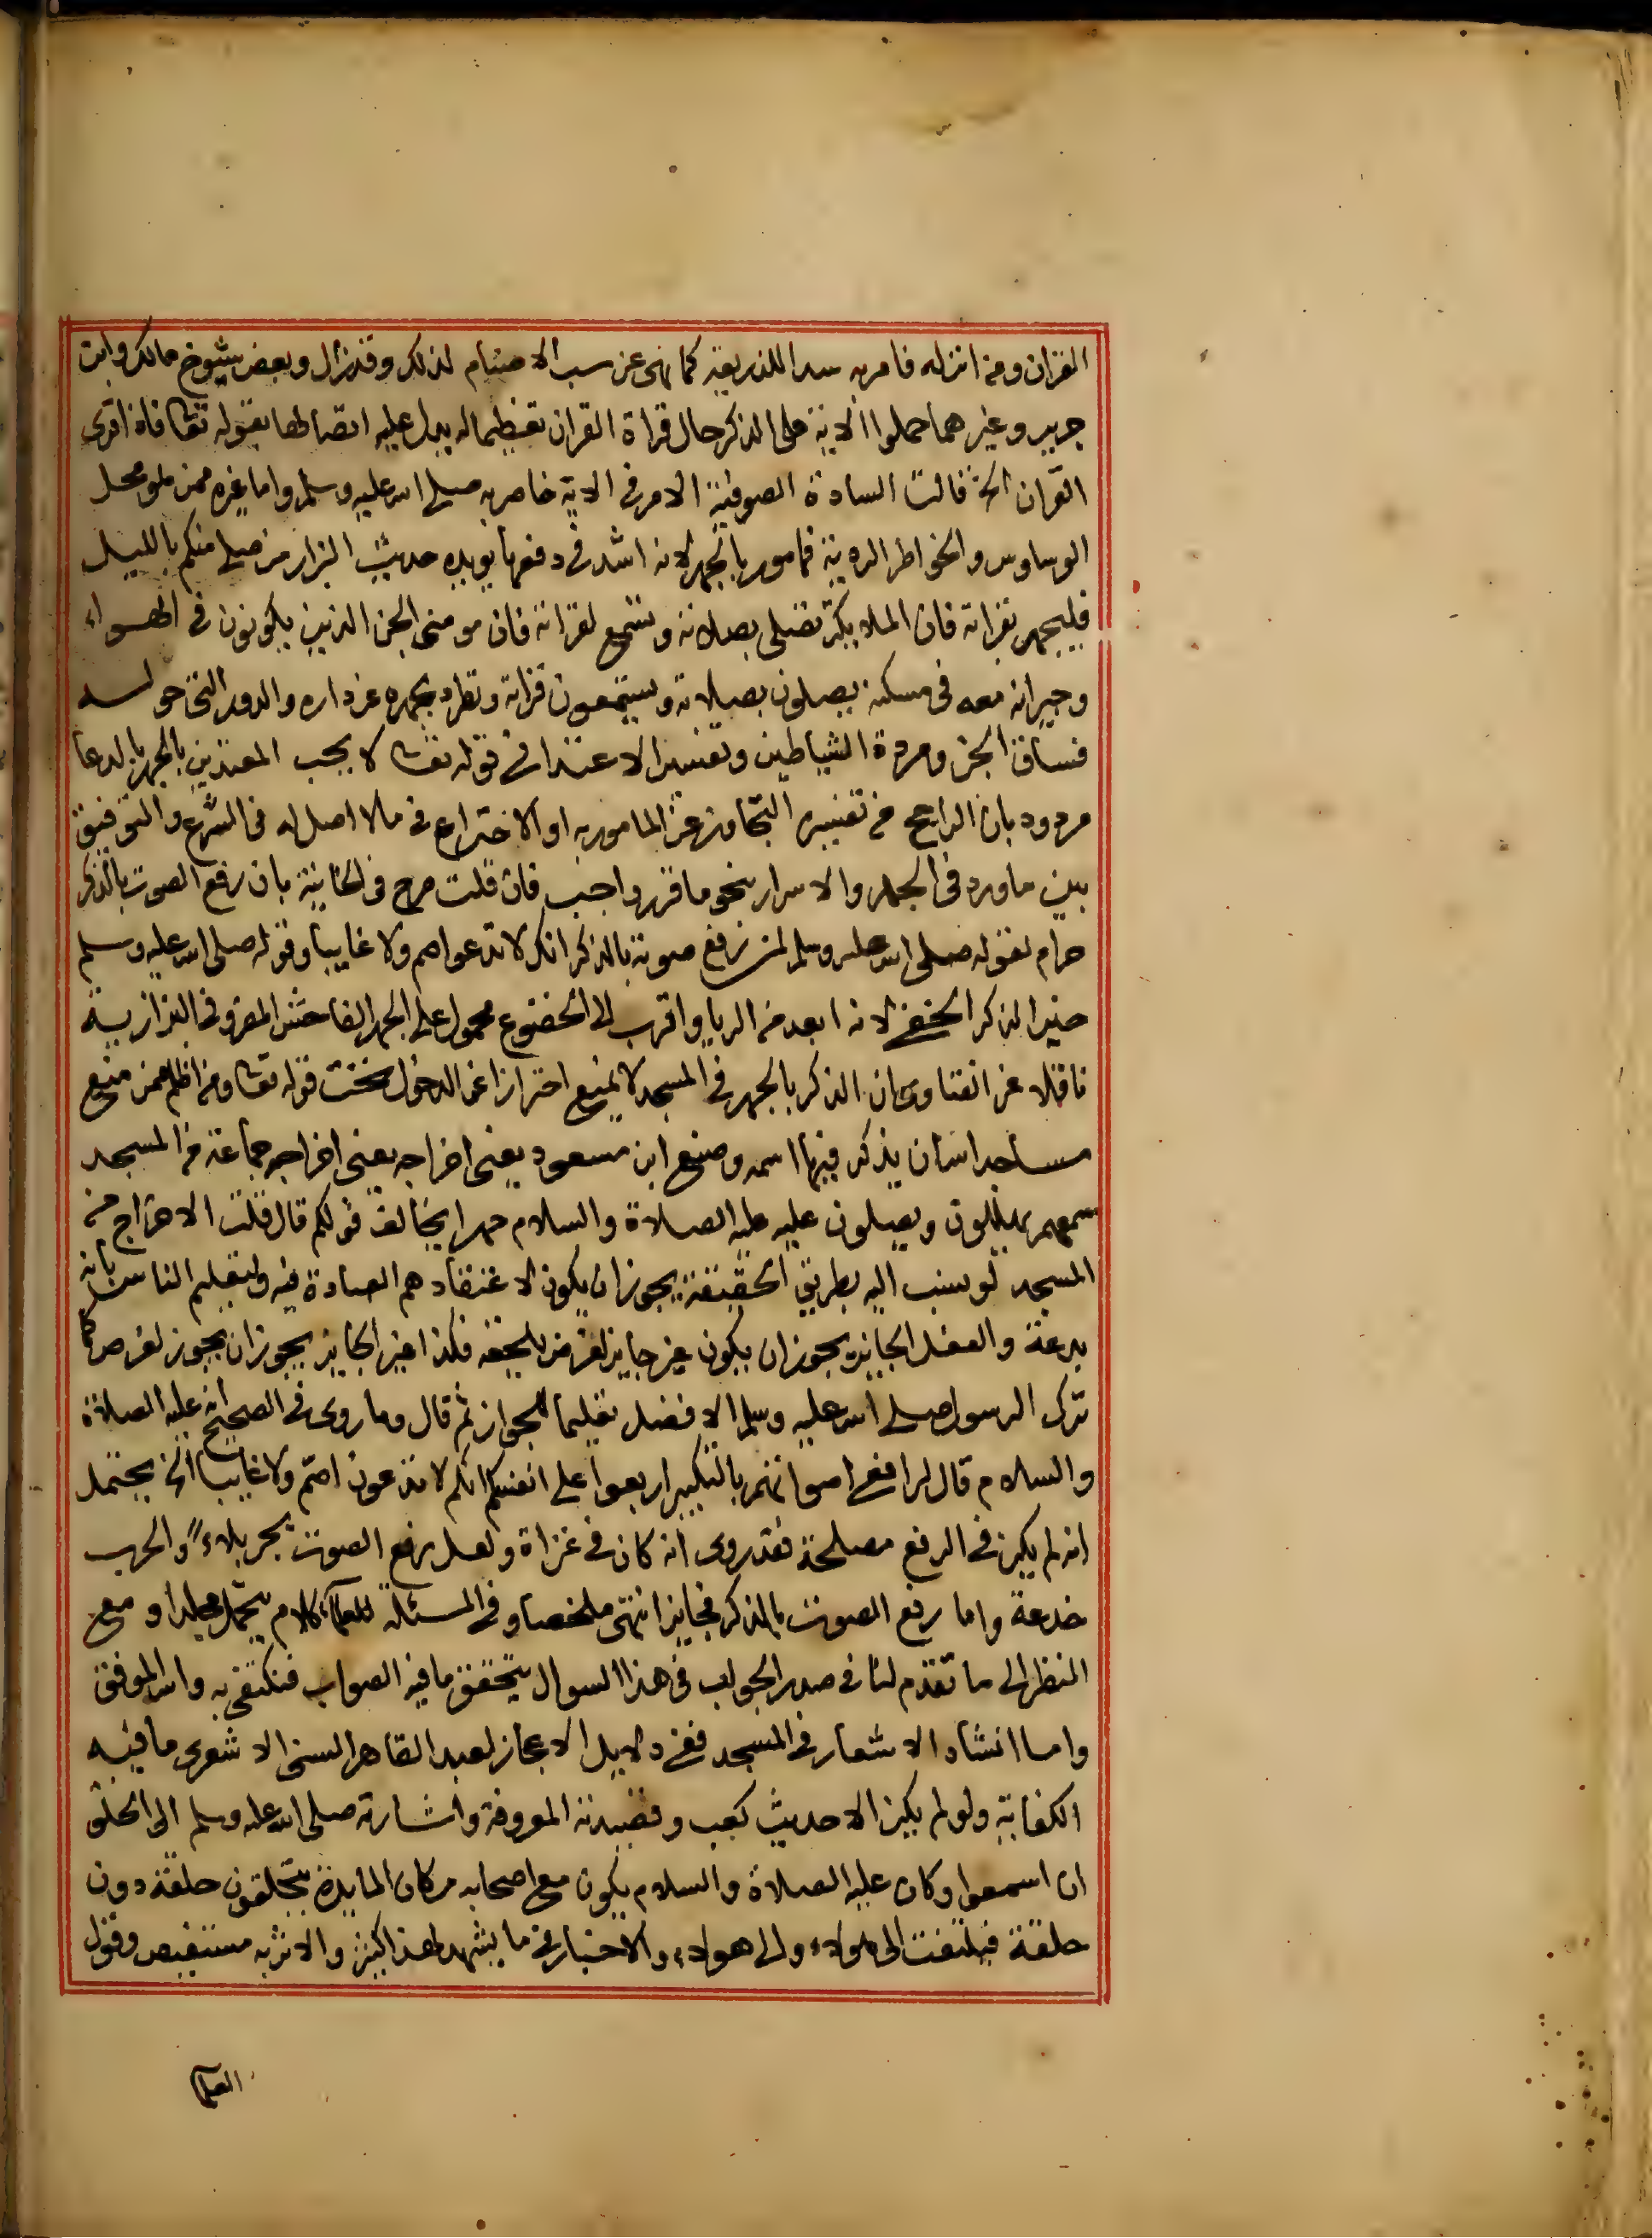 القران ومن انزله فامر به سدا للذريعة كما نهى عن سب الاصنام لذلك وقد زال وبعض شيوخ مالك وابن
جرير وغيرهما حملوا الاية على الذكر حال قراة القران تعظيما له يدل عليه اتصالها بقوله تعا فاذا قرى
القران الخ قالت السادة الصوفية الامر في الاية خاص به صلى الله عليه وسلم واما غيره ممن هو محل
الوساوس والخواطر الردية فمامور بالجهر لانه اشد في دفعها يويده حديث البزار من صلى منكم بالليل
فليجهر بقراته فان الملايكة تصلى بصلاته وتسمع لقراته فان مومنى الجن الذين يكونون في الهواء
وجيرانه معه فى مسكنه يصلون بصلاته ويستمعون قراته وتطرد بجهره عن داره والدور التى حوله
فساق الجن ومردة الشياطين وتفسير الاعتدا في قوله تعا لا يحب المعتدين بالجهر بالدعا
مردود بان الراجح في تفسيره التجاوز عن المامور به او الاختراع في ما لا اصل له فى الشرع والتوفيق
بين ما ورد في الجهر والاسرار بنحو ما قرر واجب فان قلت صرح في الخانية بان رفع الصوت بالذكر
حرام لقوله صلى الله عليه وسلم لمن رفع صوته بالذكر انك لا تدعو اصم ولا غايبا وقوله صلى الله عليه وسلم
خير الذكر الخفى لانه ابعد من الريا واقرب الى الخضوع محمول على الجهر الفاحش المضر وفى البزازية
ناقلا عن الفتاوى ان الذكر بالجهر في المسجد لا يمنع احترازا عن الدخول تحت قوله تعا ومن اظلم ممن منع
مساجد الله ان يذكر فيها اسمه وصنع ابن مسعود يعنى اخراجه يعنى اخراجه جماعة من المسجد
سمعهم يهللون ويصلون عليه عليه الصلاة والسلام جهرا يخالف قولكم قال قلت الاخراج من
المسجد لو نسب اليه بطريق الحقيقة يجوز ان يكون لاعتقادهم العبادة فيه ولتعليم الناس بانه
بدعة والفعل الجايز يجوز ان يكون غير جايز لغرض يلحقه فكذا غير الجايز يجوز ان يجوز لغرض كما
ترك الرسول صلى الله عليه وسلم الافضل تعليما للجواز ثم قال وما روى في الصحيح انه عليه الصلاة
والسلام قال لرافعى اصواتهم بالتكبير اربعوا على انفسكم انكم لا تدعون اصم ولا غايبا الخ يحتمل
انه لم يكن في الرفع مصلحة فقد روى انه كان في غزاة ولعل رفع الصوت يجر بلاء والحرب
خدعة واما رفع الصوت بالذكر فجايز انتهى ملخصا وفي المسئلة للعلما كلام يحتمل مجلدا ومع
النظر الى ما تقدم لنا في صدر الجواب فى هذا السوال يتحقق ما فيه الصواب فنكتفى به والله الموفق
واما انشاد الاشعار في المسجد ففي دلايل الاعجاز لعبد القاهر السنى الاشعرى ما فيه
الكفاية ولو لم يكن الا حديث كعب وقصيدته المعروفة واشارته صلى الله عليه وسلم الى الخلق
ان اسمعوا وكان عليه الصلاة والسلام يكون مع اصحابه مكان المايدة يتحلقون حلقة دون
حلقة فيلتفت الى هولاء والى هولاء والاخبار في ما يشهد لهذا كثير والاثر به مستفيض وقول
العلما